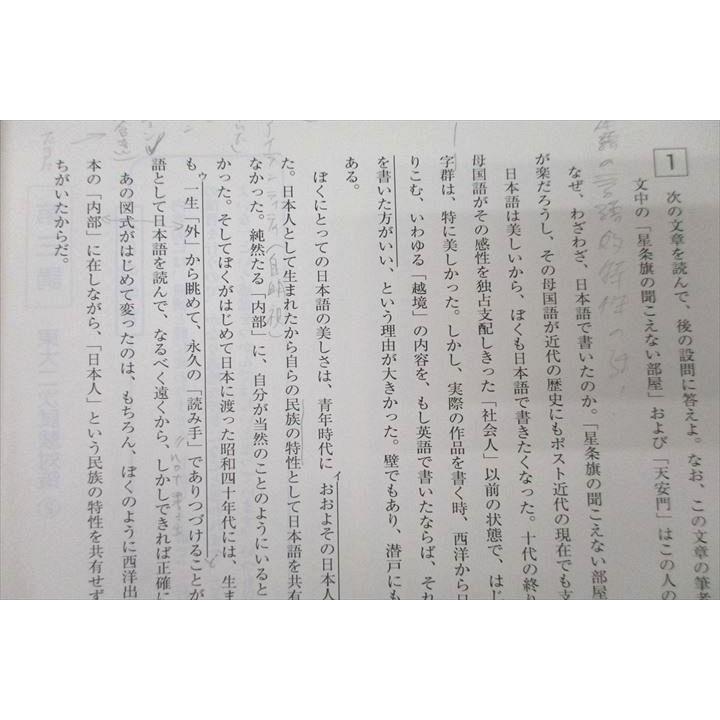 1
次の文章を読んで、後の設問に答えよ。なお、この文章の筆者
文中の「星条旗の聞こえない部屋」および「天安門」はこの人の
なぜ、わざわざ、日本語で書いたのか。「星条旗の聞こえない部屋
が楽だろうし、その母国語が近代の歴史にもポスト近代の現在でも支
日本語は美しいから、ぼくも日本語で書きたくなった。十代の終り
母国語がその感性を独占支配しきった「社会人」以前の状態で、はじ
字群は、特に美しかった。しかし、実際の作品を書く時、西洋から日
りこむ、いわゆる「越境」の内容を、もし英語で書いたならば、それ
を書いた方がいい、という理由が大きかった。壁でもあり、潜戸にも
ある。
ぼくにとっての日本語の美しさは、青年時代に
イ
おおよその日本人
た。日本人として生まれたから自らの民族の特性として日本語を共有
なかった。純然たる「内部」に、自分が当然のことのようにいると
かった。そしてぼくがはじめて日本に渡った昭和四十年代には、生ま
も、
ウ
一生「外」から眺めて、永久の「読み手」でありつづけることが
語として日本語を読んで、なるべく遠くから、しかしできれば正確に
あの図式がはじめて変ったのは、もちろん、ぼくのように西洋出
本の「内部」に在しながら、「日本人」という民族の特性を共有せず
ちがいたからだ。